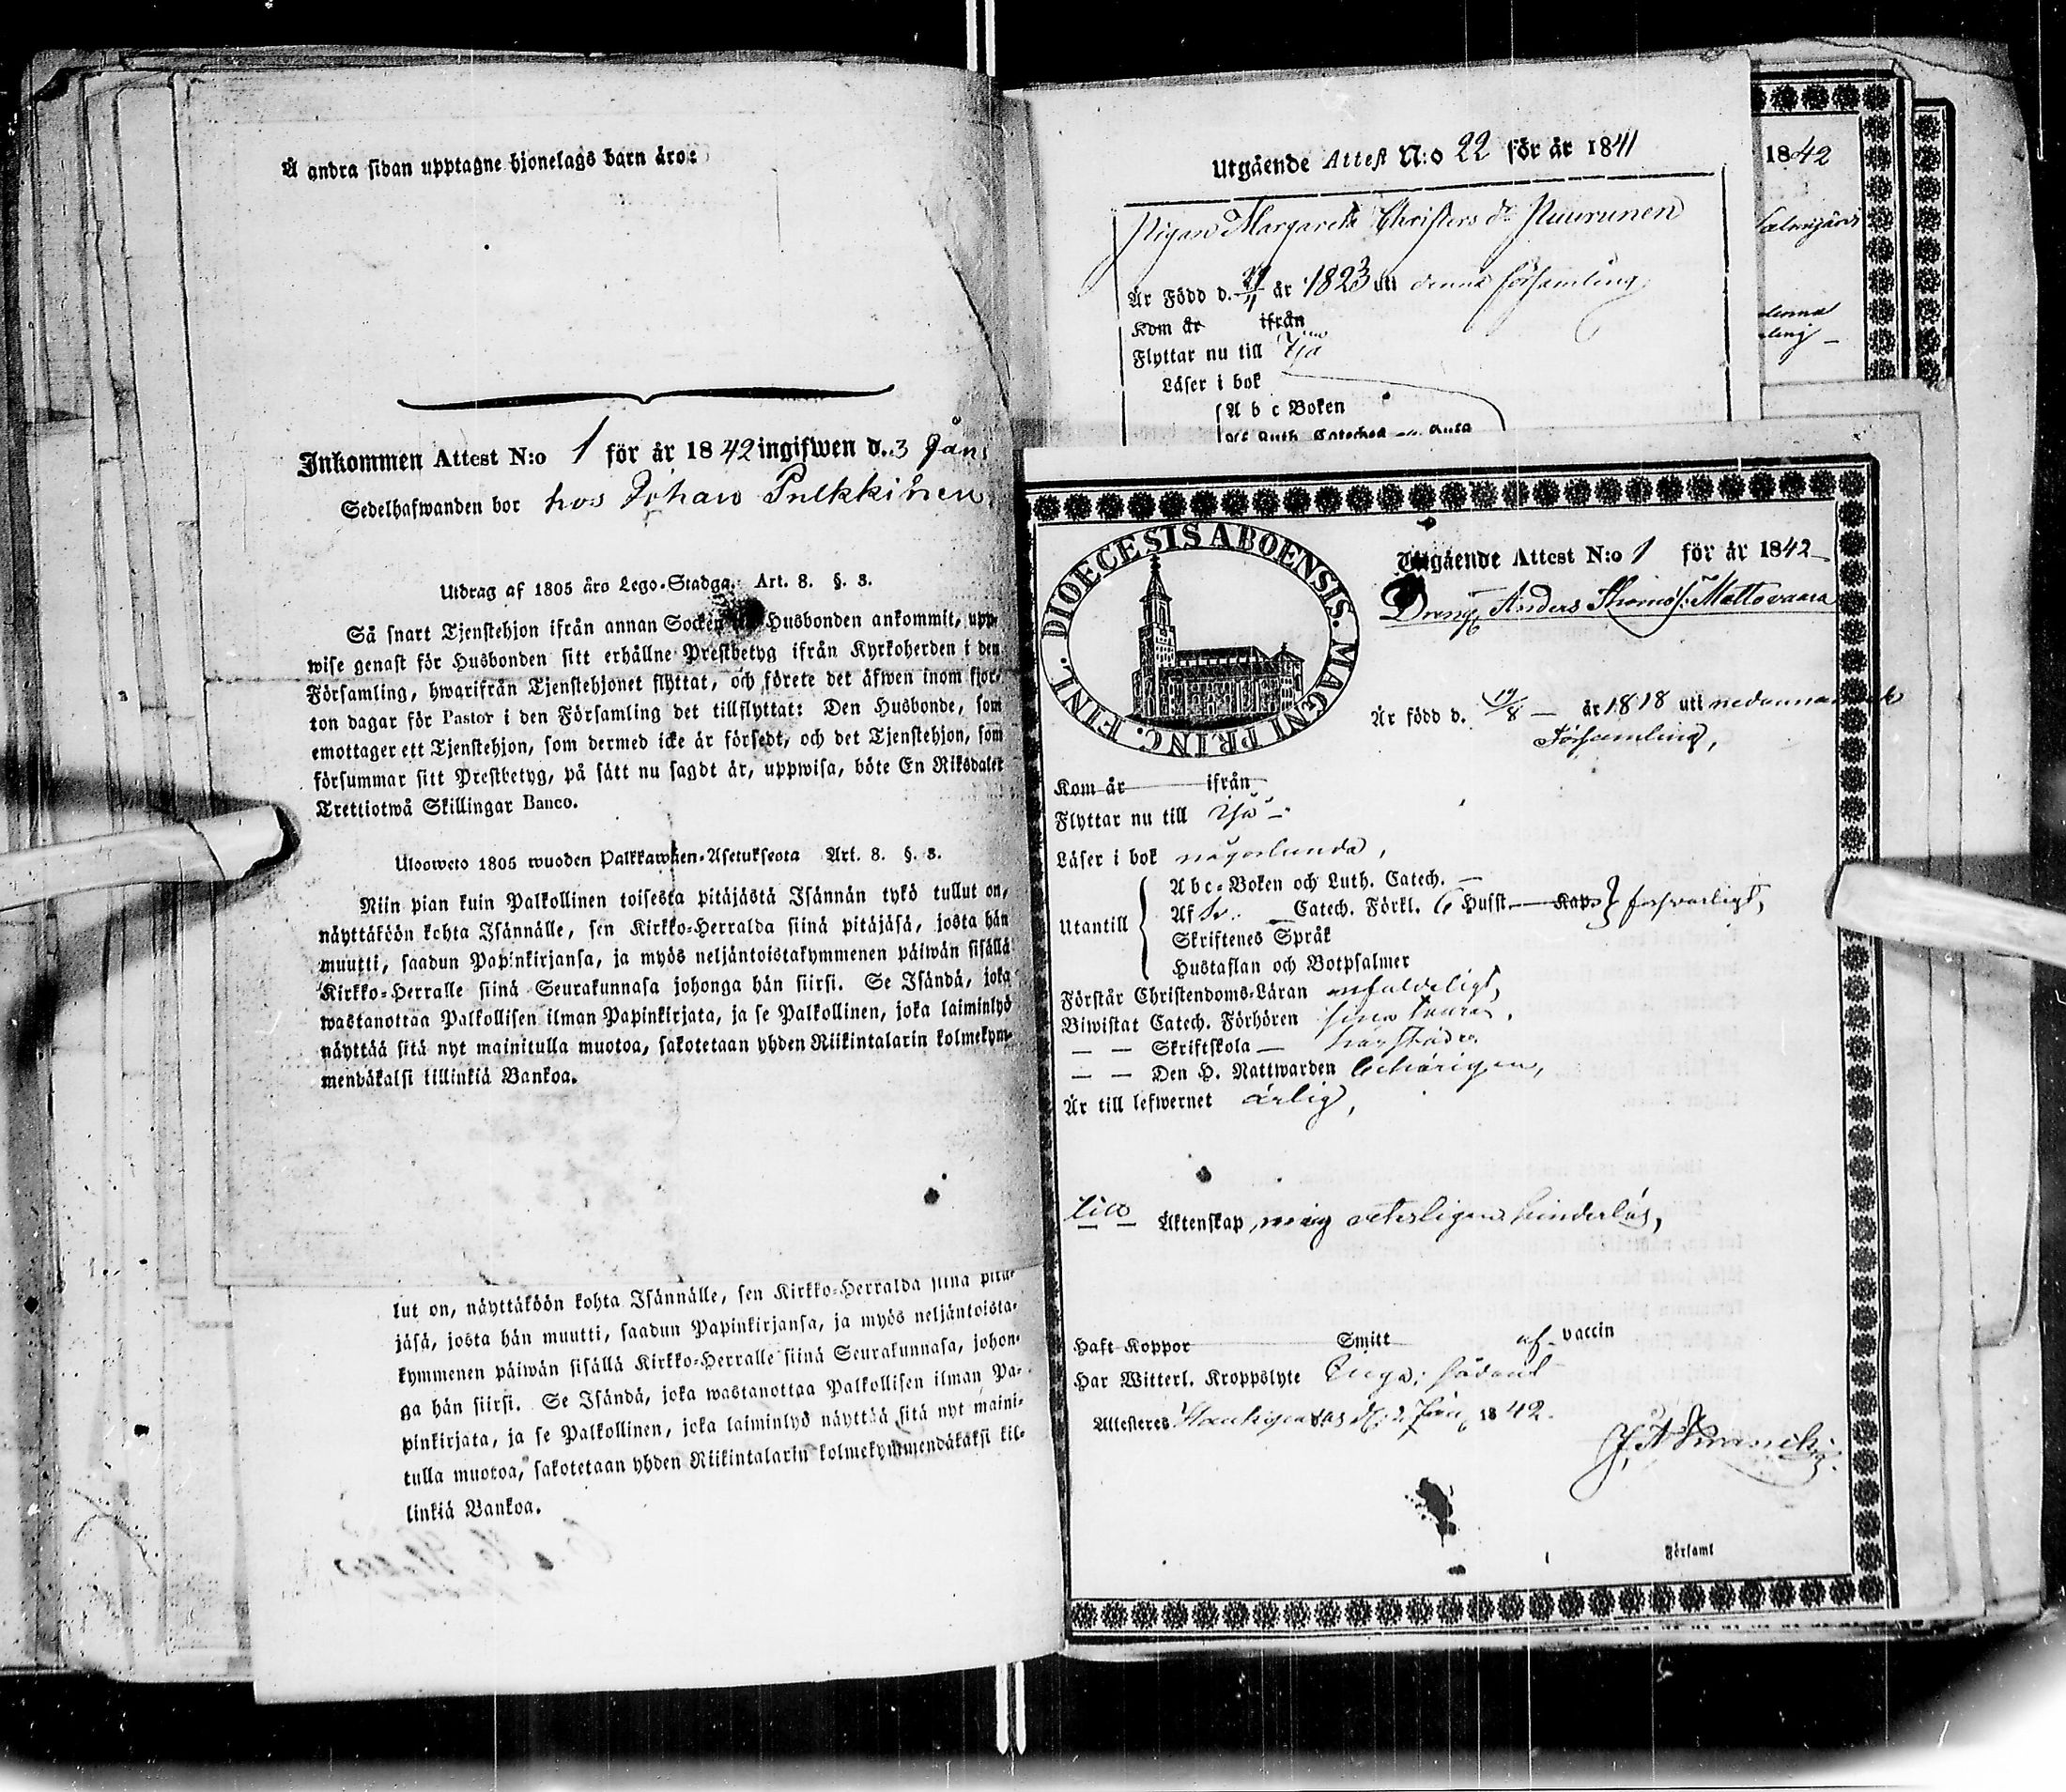 Å andra sidan upptagne hjonelags barn äro:
Inkommen Attest N:o 1 för år 1842 ingifwen d. 3 Jan:
Sedelhafwanden bor hos Johan Pulkkinen
Utdrag af 1805 års Lego-Stadga. Art. 8. §. 3.
Så snart Tjenstehjon ifrån annan Socken Husbonden ankommit, upp-
wise genast för Husbonden sitt erhållne Prestbetyg ifrån Kyrkoherden i den
Församling, hwarifrån Tjenstehjonet flyttat, och förete det äfwen inom fjor-
ton dagar för Pastor i den Församling det tillflyttat: Den Husbonde, som
emottager ett Tjenstehjon, som dermed icke är försedt, och det Tjenstehjon, som
försummar sitt Prestbetyg, på sätt nu sagdt är, uppwisa, böte En Riksdaler
Trettiotwå Skillingar Banco.
Uloosweto 1805 wuoden Palkkawäen-Asetuksesta Art. 8. §. 3.
Niin pian kuin Palkollinen toisesta pitäjästä Isännän tykö tullut on,
näyttäköön kohta Isännälle, sen Kirkko-Herralda siinä pitäjäsä, josta hän
muutti, saadun Papinkirjansa, ja myös neljäntoistakymmenen päiwän sisällä
Kirkko-Herralle siinä Seurakunnasa johonga hän siirsi. Se Isändä, joka
wastanottaa Palkollisen ilman Papinkirjata, ja se Palkollinen, joka laiminlyö
näyttää sitä nyt mainitulla muotoa, sakotetaan yhden Riikintalarin kolmekym-
mendäkaksi killinkiä Bankoa.
lut on, näyttäköön kohta Isännälle, sen Kirkko-Herralda siinä pitä-
jäsä, josta hän muutti, saadun Papinkirjansa, ja myös neljäntoista-
kymmenen päiwän sisällä Kirkko-Herralle siinä Seurakunnasa, johon-
ga hän siirsi. Se Isändä, joka wastanottaa Palkollisen ilman Pa-
pinkirjata, ja se Palkollinen, joka laiminlyö näyttää sitä nyt maini-
tulla muotoa, sakotetaan yhden Riikintalarin kolmekymmendäkaksi kil-
linkiä Bankoa.
Utgående Attest N:o 22 för år 1841
Pigan Margareta Christers dr Puurunen
Är Född d. 11 år 1823 uti denna församling
Kom år ifrån
Flyttar nu till Ijo
Läser i bok
A b c Boken
1842
DIOECESIS ABOENSIS. MAGNI PRINC. FINL.
Utgående Attest N:o 1 för år 1842
Dreng Anders Thomæs: Mattovaara
Är född d. 19/8 år 1818 uti
Församling,
Kom år ifrån
Flyttar nu till Ijo
Läser i bok någorlunda,
Abc-Boken och Luth. Catech.
Af Sv: Catech. Förkl. 6 Hufst. Kap. försvarligt,
Utantill
Skriftenes Språk
Hustaflan och Botpsalmer
Förstår Christendoms-Läran enfaldeligt,
Biwistat Catech. Förhören
— — Skriftskola
— — Den H. Nattwarden behörigen,
Är till lefwernet ärlig,
Äktenskap mig veterligen hinderlös,
Haft Koppor Smitt af vaccin
Har Witterl. Kroppslyte Inga: sådant
Attesteras 2 Jan: 1842.
Församl